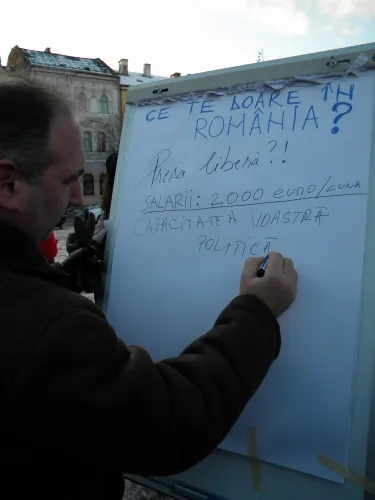 CE TE DOARE ÎN
ROMÂNIA?
Presa liberă?!
SALARII: 2000 euro/LUNA
CAPACITATEA VOASTRĂ
POLITICĂ